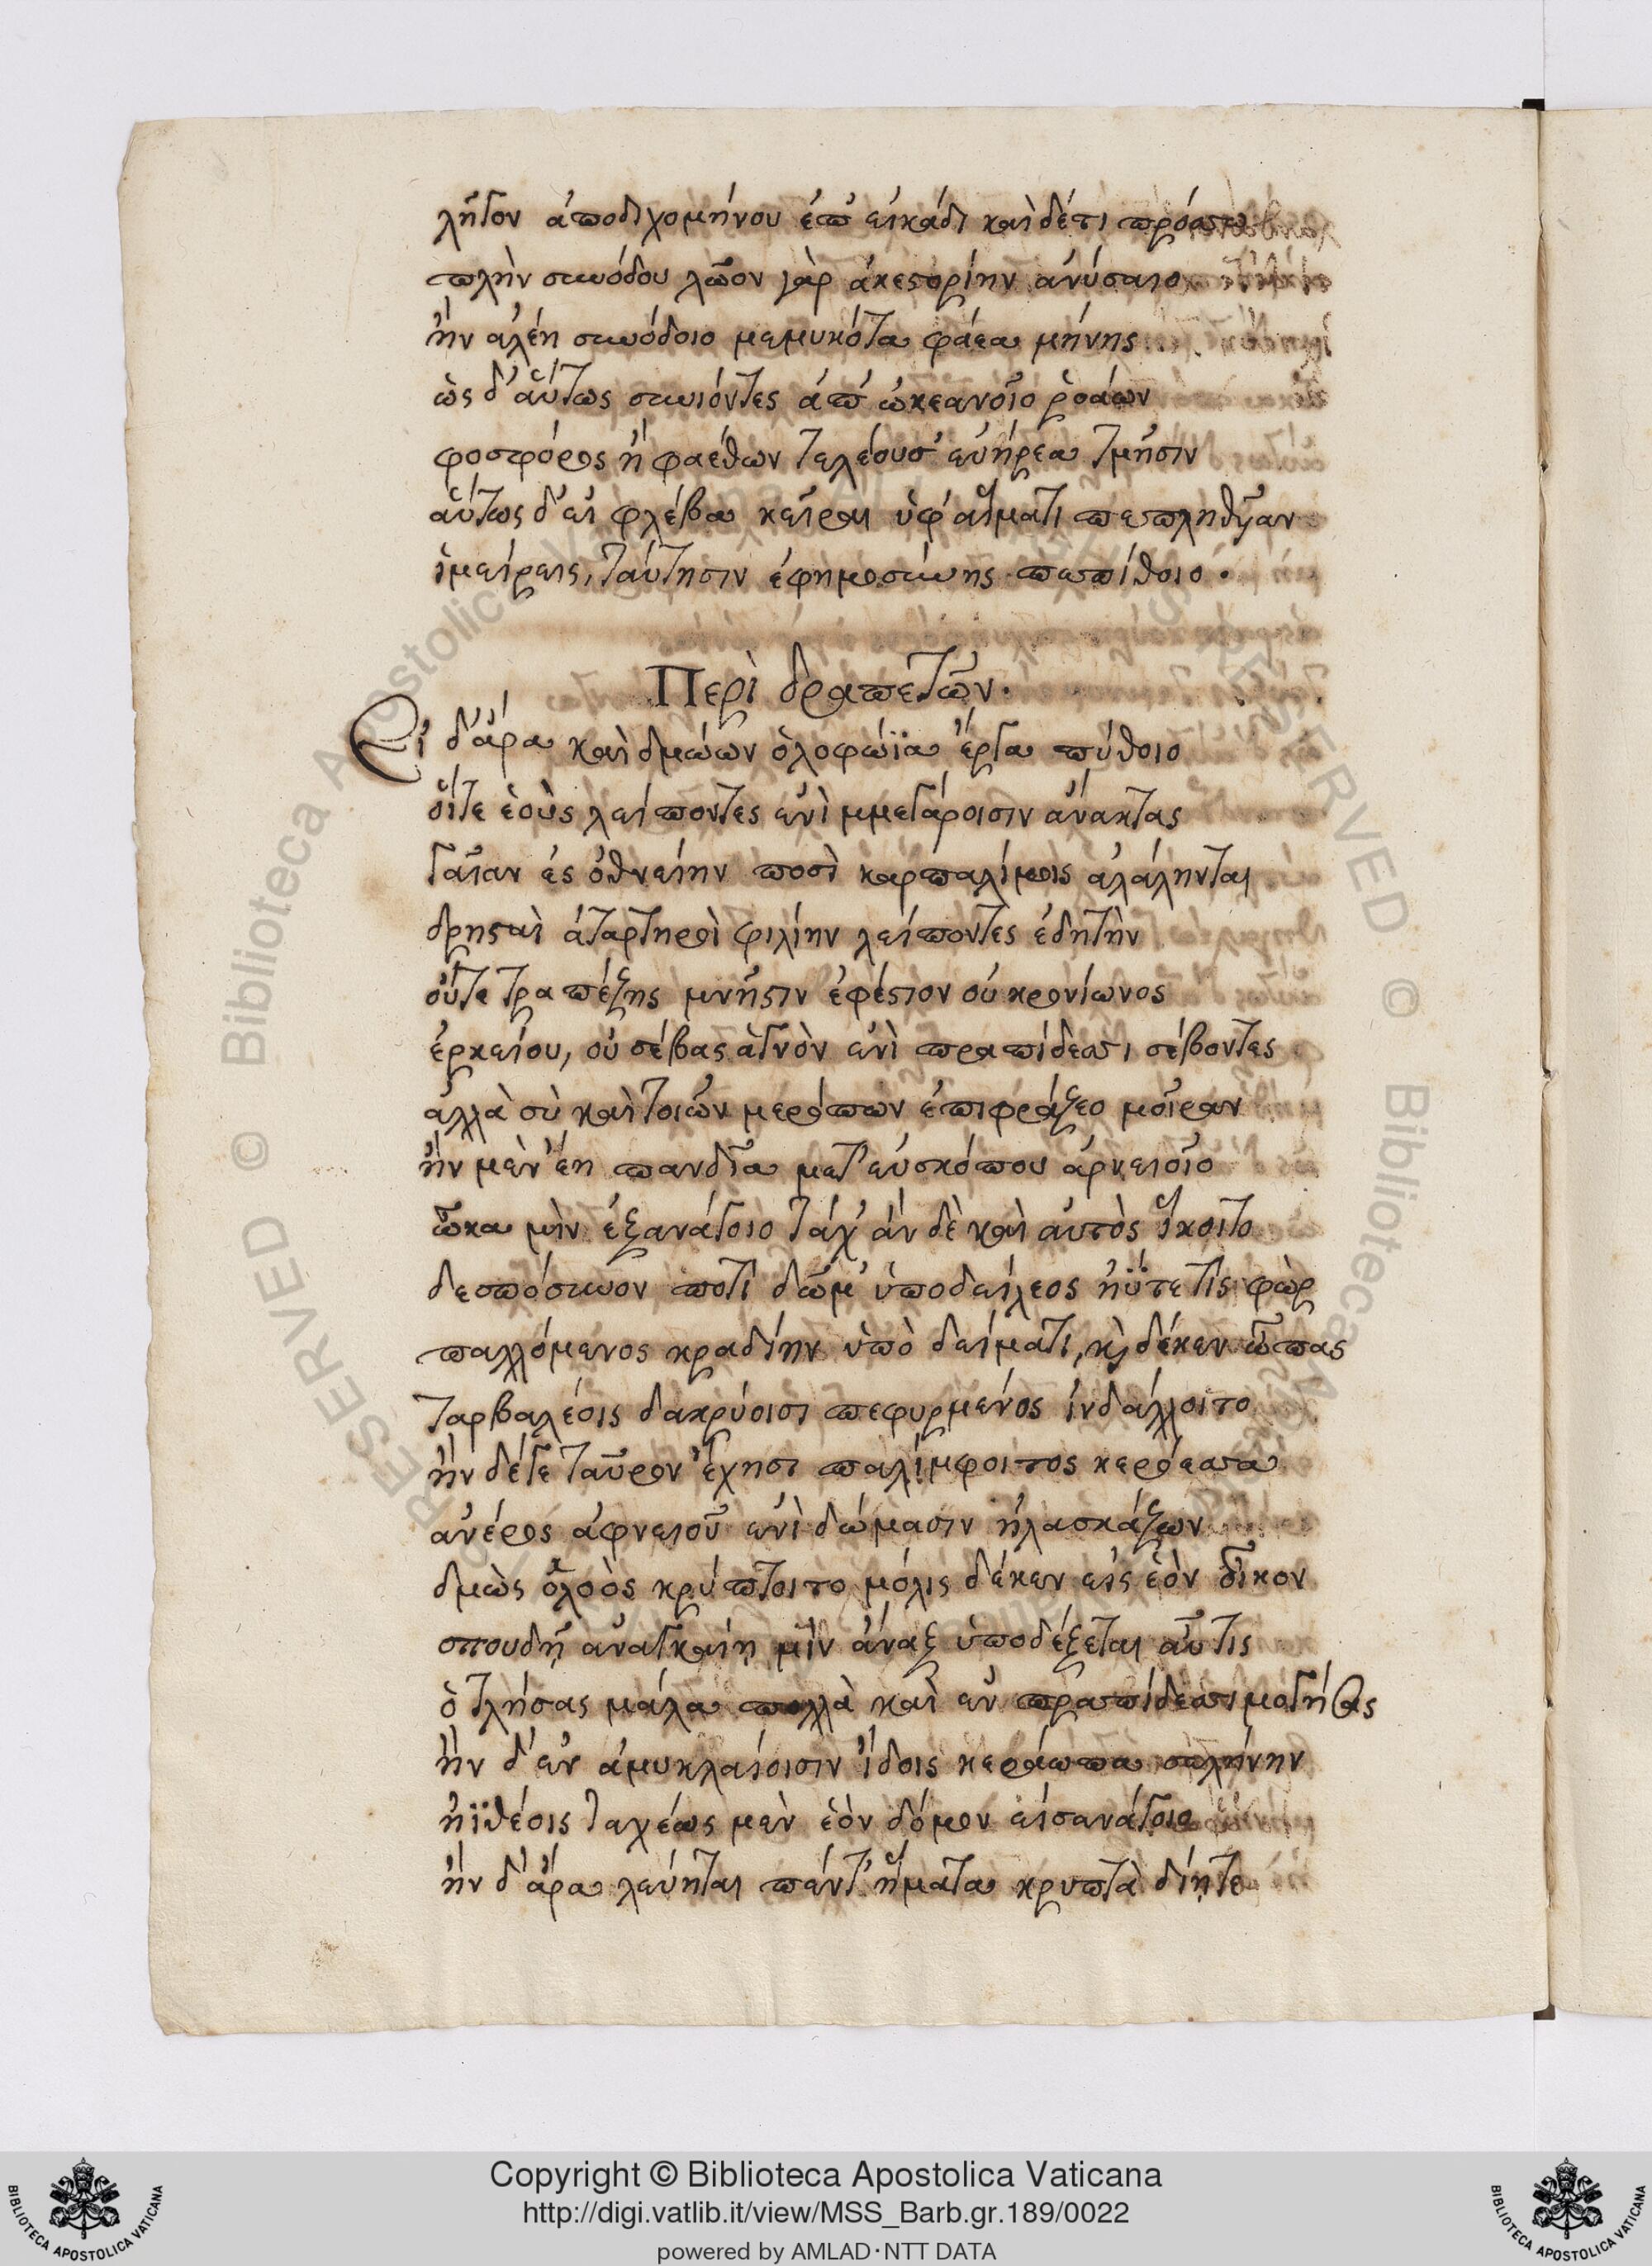 λῆγον ἀποδιχομήνου ἐπ' εἰκάδι καὶ δέτι πρόσσω
πλὴν συνόδου λῶον γὰρ ἀκεστορίην ἀνύσαιο
ἢν ἀλέῃ συνόδοιο μεμυκότα φάεα μήνης
ὡς δ' αὔτως συνιόντες ἀπ' ὠκεανοῖο ῥοάων
φοσφόρος ἢ φαέθων τελέουσ' εὐήρεα τμῆσιν
αὔτως δ' εἰ φλέβα κεῖραι ὑφ' αἵματι πεπληθυῖαν
ἱμείρεις, ταύτησιν ἐφημοσύνης πεπίθοιο.
Περὶ δραπετῶν.
Εἰ δ' ἄρα καὶ δμώων ὀλοφώϊα ἔργα πύθοιο
οἵτε ἑοὺς λείποντες ἐνὶ μμεγάροισιν ἄνακτας
γαῖαν ἐς ὀθνείην ποσὶ καρπαλίμοις ἀλάληνται
δρησταὶ ἀταρτηροὶ φιλίην λείποντες ἐδητὴν
οὔτε τραπέζης μνῆστιν ἐφέστιον οὐ κρονίωνος
ἑρκείου, οὐ σέβας ἁγνὸν ἐνὶ πραπίδεσσι σέβοντες
ἀλλὰ σὺ καὶ τοιῶν μερόπων ἐπιφράζεο μοῖραν
ἢν μὲν ἔῃ πανδῖα μετ' εὐσκόπου ἀρνειοῖο
ὦκα μὴν ἐξανάγοιο τάχ' ἂν δὲ καὶ αὐτὸς ἵκοιτο
δεσπόσυνον ποτὶ δῶμ' ὑποδείλεος ἠΰτε τὶς φὼρ
παλλόμενος κραδίην ὑπὸ δείματι, κὴ δέκεν ὦπας
ταρβαλέοις δακρύοισι πεφυρμένος ἰνδάλλοιτο
ἢν δέγε ταῦρον ἔχησι παλίμφοιτος κερόεσσα
ἀνέρος ἀφνειοῦ ἐνὶ δώμασιν ἠλασκάζων
δμὼς ὀλοὸς κρύπτοιτο μόλις δέκεν εἰς ἑὸν οἶκον
σπουδῇ ἀναγκαίῃ μὶν ἄναξ ὑποδέξεται αὖτις
ὁ τλήσας μάλα πολλὰ καὶ ἐν πραπίδεσσι μογήσας
ἢν δ' ἐν ἀμυκλαίοισιν ἴδοις κεράωπα σελήνην
ἠϊθέοις ταχέως μὲν ἑὸν δόμον εἰσανάγοιο
ἢν δ' ἄρα λεύηται πέντ' ἤματα κρυπτὰ δίῃτε
Copyright © Biblioteca Apostolica Vaticana
http://digi.vatlib.it/view/MSS_Barb.gr.189/0022
powered by AMLAD·NTT DATA